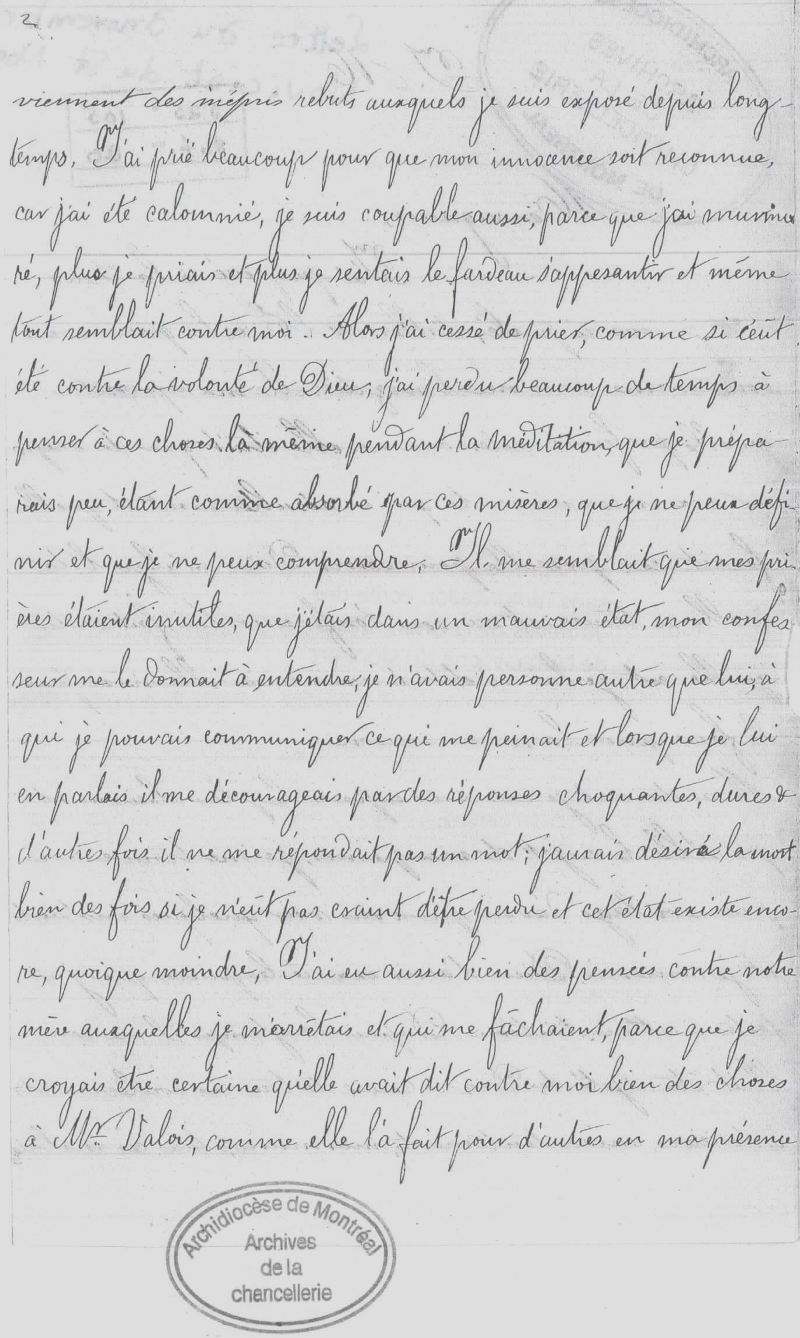 2
viennent des mépris rebuts auxquels je suis exposé depuis long-
temps. J'ai prié beaucoup pour que mon innocence soit reconnue,
car j'ai été calomnié, je suis coupable aussi, parce que j'ai murmu
ré, plus je priais et plus je sentais le fardeau s'appesantir et même
tout semblait contre moi. Alors j'ai cessé de prier, comme si c'eût
été contre la volonté de Dieu, j'ai perdu beaucoup de temps à
penser à ces choses là même pendant la méditation, que je prépa-
rais peu, étant comme absorbé par ces misères, que je ne peux défi
nir et que je ne peux comprendre. Il me semblait que mes pri
ères étaient inutiles, que j'étais dans un mauvais état, mon confes
seur me le donnait à entendre, je n'avais personne autre que lui, à
qui je pouvais communiquer ce qui me peinait et lorsque je lui
en parlais il me décourageais par des réponses choquantes, dures &
d'autres fois il ne me répondait pas un mot; j'aurais désiré la mort
bien des fois si je n'eût pas craint d'être perdu et cet état existe enco-
re, quoique moindre, J'ai eu aussi bien des pensées contre notre
mère auxquelles je m'arrêtais et qui me fâchaient, parce que je
croyais être certaine qu'elle avait dit contre moi bien des choses
à Mr. Valois, comme elle l'a fait pour d'autres en ma présence
Archidiocèse de Montréal
Archives
de la
chancellerie